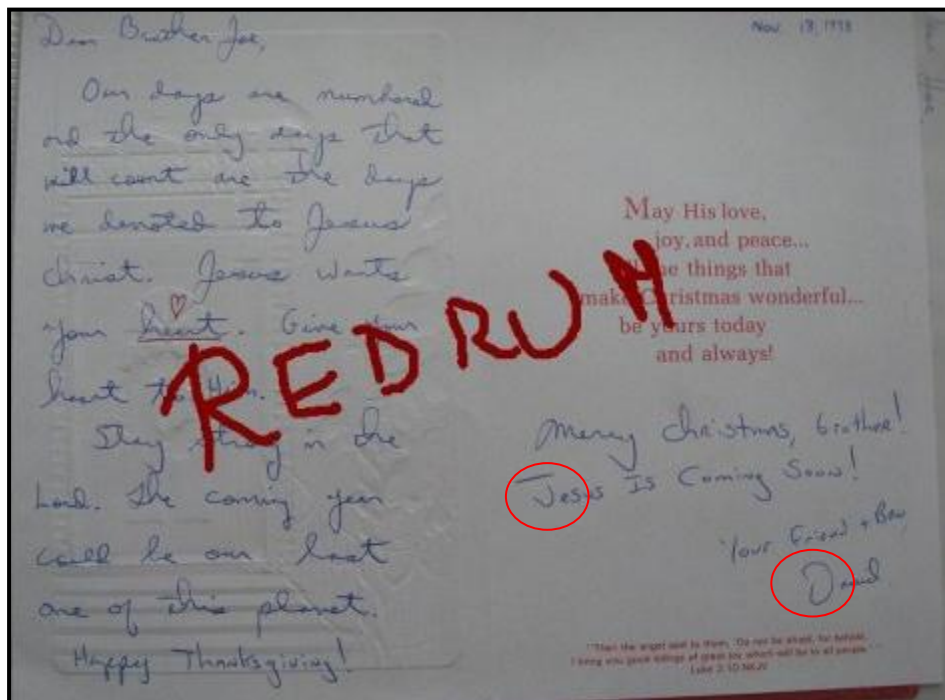 Dear Brother Joe,
Our days are numbered
and the only days that
will count are the days
we denoted to Jesus
Christ. Jesus wants
your heart. Give your
heart to Him.
Stay strong in the
Lord. The coming year
could be our last
one of this planet.
Happy Thanksgiving!
REDRUM
Nov. 1998
May His love,
joy, and peace...
the things that
make Christmas wonderful...
be yours today
and always!
Merry Christmas, brother!
Jesus Is Coming Soon!
Your Friend + Bro,
David
"Then the angel said to them, 'Do not be afraid, for behold,
I bring you good tidings of great joy which will be to all people.
Luke 2:10 NKJV